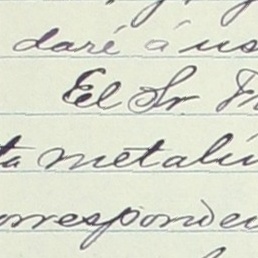 daré á us
El Sr Fr
ta metalí
orresponden